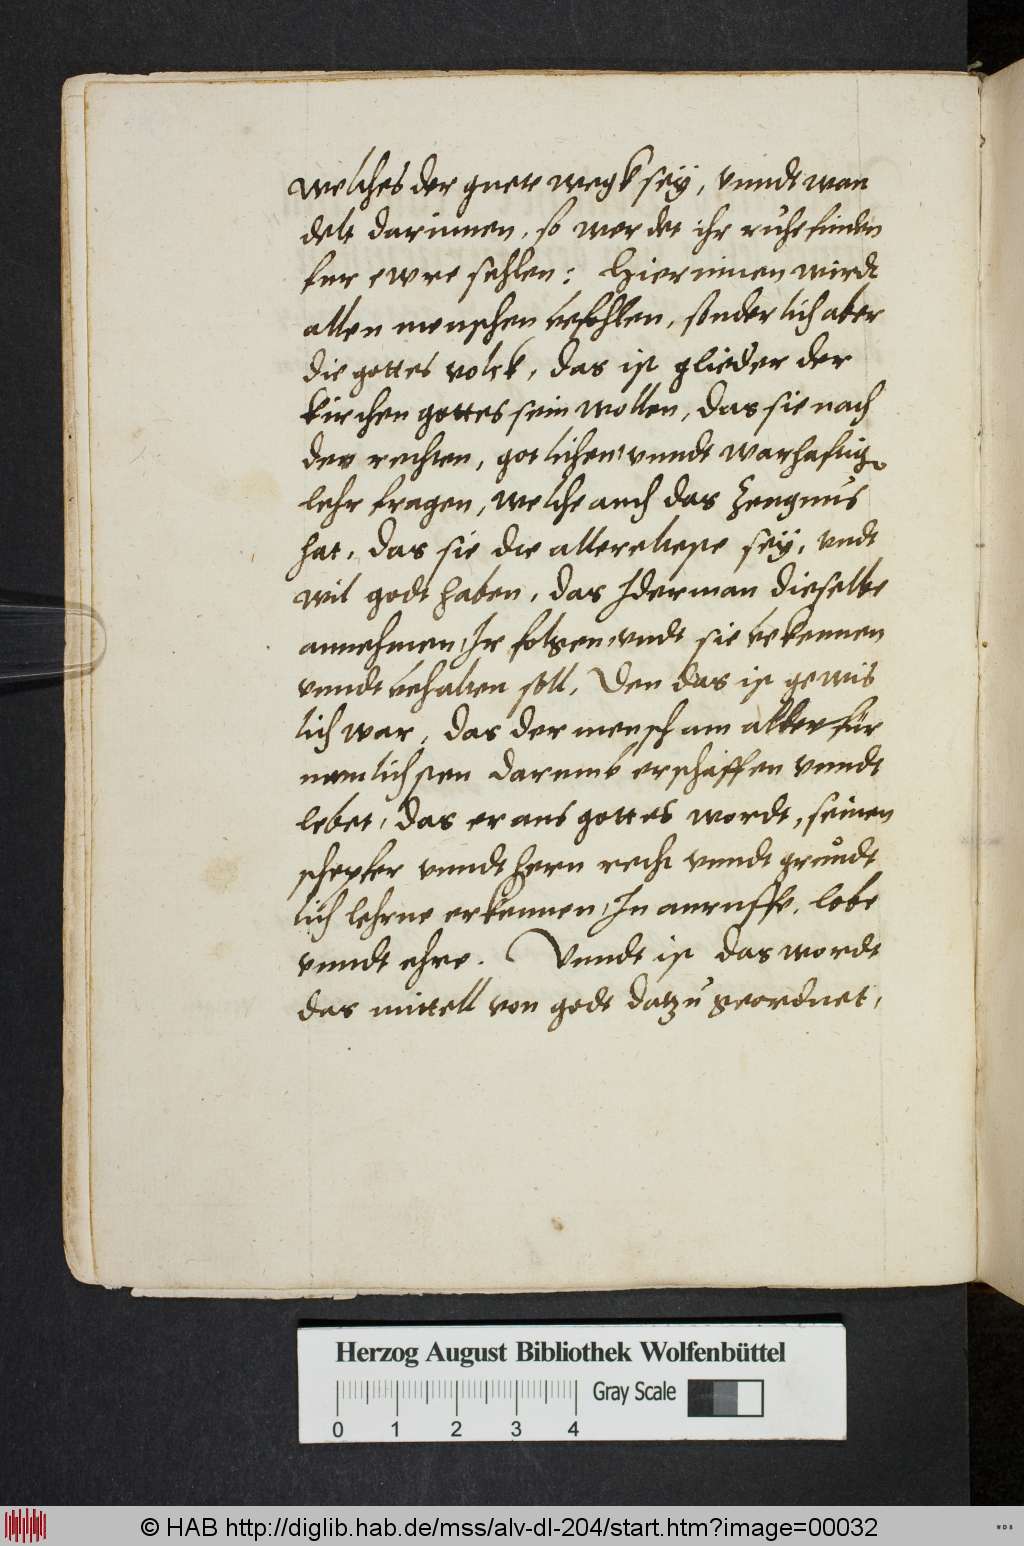 welches der guete wegk sey, vnndt wan
delt darinnen, so werdet ihr ruhe finden
fur ewre sehlen: Hierinnen wirdt
allen menschen befohlen, sonderlich aber
die gottes volck, das ist glieder der
kirchen gottes sein wollen, das sie nach
der rechten, gotlichen vnndt warhaftig
lehr fragen, welche auch das Zeugnus
hat, das sie die allereltest sey, vndt
wil godt haben, das Jderman dieselbe
annehmen, Ir folgen vndt sie bekennen
vnndt behalten soll, Den das ist gewis
lich war, das der mensch am aller für
nemlichsten darumb erschaffen vnndt
lebet, das er aus gottes wordt, seinen
schepfer vnndt hern recht vnndt grundt
lich lehrne erkennen, In anruffe, lobe
vnndt ehre. Vnndt ist das wordt
das mittell von godt datzu geordnet,
Herzog August Bibliothek Wolfenbüttel
Gray Scale
0 1 2 3 4
© HAB http://diglib.hab.de/mss/alv-dl-204/start.htm?image=00032